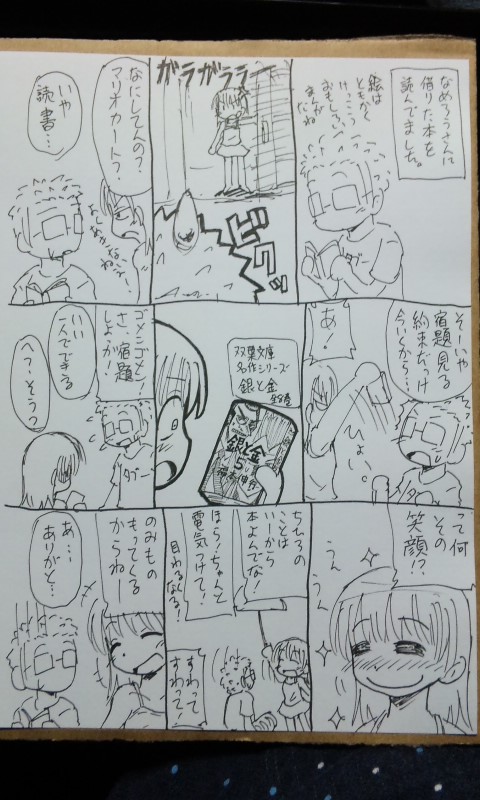 なめろうさんに
借りた本を
読んでました。
絵は
ともかく
けっこう
おもしろい
まんが
だね
ガラガララ
ビクッ
なにしてんの？
マリオカート？
いや
読書…
そいや
宿題見る
約束だっけ
今いくから
あ！
ひょい。
双葉文庫
名作シリーズ
銀と金
全8巻
銀と金
5
福本伸行
ゴメンゴメン！
さ、宿題
しようか！
いい
一人でできる
へ？そうっ？
って何
その
笑顔！？
うん
うん
ちひろの
ことは
いーから
本よんでな！
ほらっちゃんと
電気つけて！
目わるくなる！
すわって
すわって！
のみもの
もってくる
からねー
あ…
ありがと…